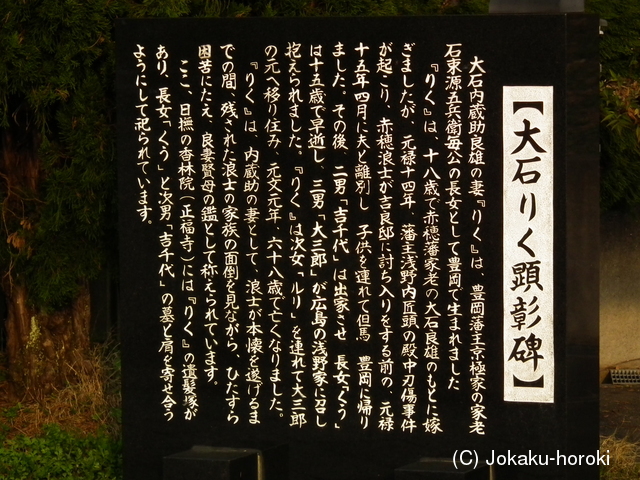 【大石りく顕彰碑】
大石内蔵助良雄の妻『りく』は、豊岡藩主京極家の家老
石束源五兵衛毎公の長女として豊岡で生まれました
『りく』は、十八歳で赤穂藩家老の大石良雄のもとに嫁
ぎましたが、元禄十四年、藩主浅野内匠頭の殿中刃傷事件
が起こり、赤穂浪士が吉良邸に討ち入りをする前の、元禄
十五年四月に夫と離別し、子供を連れて但馬 豊岡に帰り
ました。その後、二男「吉千代」は出家させ 長女「くう」
は十五歳で早逝し、三男「大三郎」が広島の浅野家に召し
抱えられました。『りく』は次女「ルリ」を連れて大三郎
の元へ移り住み、元文元年、六十八歳で亡くなりました。
『りく』は、内蔵助の妻として、浪士が本懐を遂げるま
での間、残された浪士の家族の面倒を見ながら、ひたすら
困苦にたえ、良妻賢母の鑑として称えられています。
ここ、日撫の杏林院(正福寺)には『りく』の遺髪塚が
あり、長女「くう」と次男「吉千代」の墓と肩を寄せ合う
ようにして祀られています。
(C) Jokaku-horoki